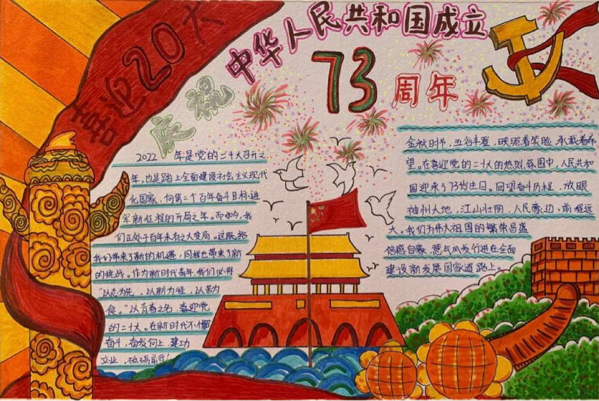 喜迎20大
庆祝中华人民共和国成立
73周年
2022 年是党的二十大召开之
年,也是踏上全面建设社会主义现代
化国家、向第二个百年奋斗目标进
军新征程的开局之年。而如今,我
们正处于百年未有之大变局,这既
我们带来了新的机遇,同样也带来了新
的挑战。作为新时代青年,我们必将
以青春之名,喜迎党
的二十大,在新时代不懈
奋斗,奋发向上,建功
立业,砥砺前行!
金秋时节,五谷丰登,映照着笑脸,承载着希
望。在喜迎党的二十大的热烈氛围中,人民共和
国迎来了73岁生日。回望奋斗历程,放眼
神州大地,江山壮丽,人民豪迈,前程远
大。我们为伟大祖国的繁荣昌盛
倍感自豪,意气风发行进在全面
建设新发展国家道路上。